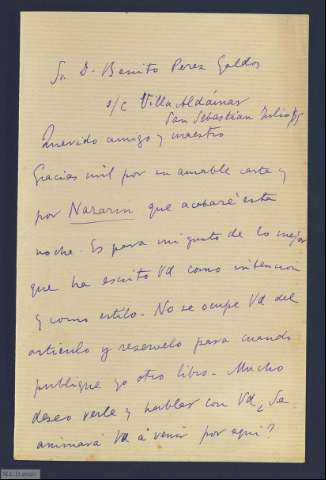 Sr D. Benito Perez Galdos
s/c Villa Aldámar
San Sebastian Julio 95
Querido amigo y maestro
Gracias mil por su amable carta y
por Nazarin que acabaré esta
noche. Es para mi gusto de lo mejor
que ha escrito Vd como intencion
y como estilo. No se ocupe Vd del
articulo y reservelo para cuando
publique yo otro libro. Mucho
deseo verle y hablar con Vd ¿Se
animará Vd á venir por aquí?